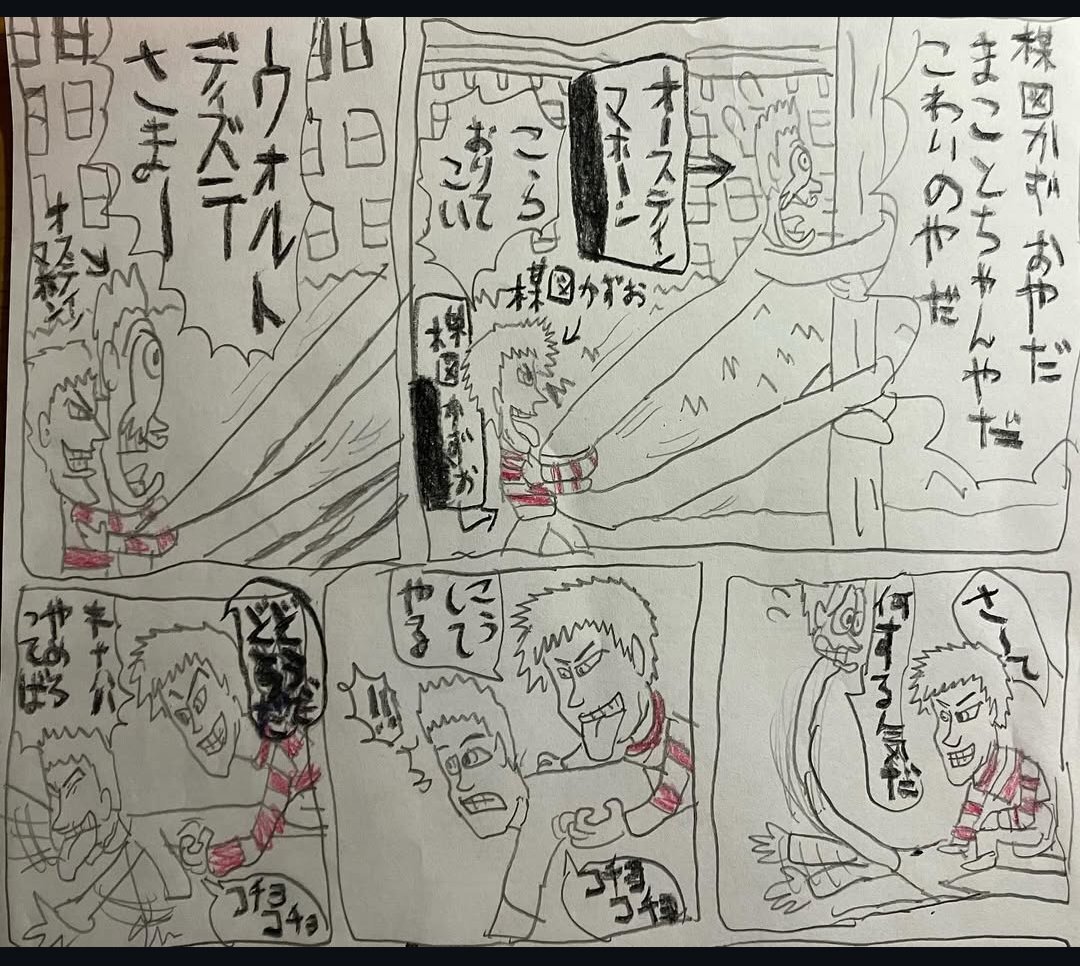 楳図かずおやだ
まことちゃんやだ
こわいのやだ
オースティン
マホーン
こらら
おりて
こい
楳図かずお
楳図かずお
ウォルト
ディズテ
さまー
オースティン
マホーン
さーて
何する気だ
こうして
やる
!!!
コチョ
コチョ
どどうだ
キャハハ
やめろ
コチョ
コチョ